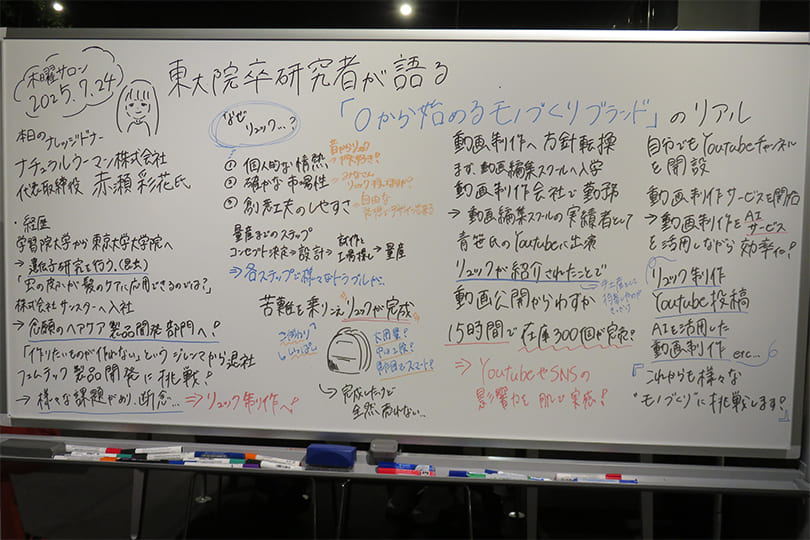 木曜サロン
2025.7.24
東大院卒研究者が語る
「0から始めるモノづくりブランド」のリアル
本日のナレッジドナー
ナチュラルウーマン株式会社
代表取締役 赤瀬 彩花氏
・経歴
学習院大学から東京大学大学院へ
→遺伝子研究を行う。(昆虫)
「虫の皮ふが髪のケアに応用できるのでは?」
株式会社サンスターへ入社
→念願のヘアケア製品開発部門へ!
「作りたいものが作れない」というジレンマから退社
フェムテック製品開発に挑戦!
→様々な課題があり、断念…⇒リュック制作へ!
なぜリュック…?
① 個人的な情熱
昔からリュックが大好き!
② 確かな市場性
③ 創意工夫のしやすさ
自由な
量産までのステップ
コンセプト決定→設計→試作と工場探し→量産
⇒各ステップで様々なトラブルが…
苦難を乗りこえリュックが完成
こだわりいっぱい
大容量!
→完成したけど全然売れない…
動画制作へ方針転換
まず、動画編集スクールへ入学
動画制作会社で勤務
→動画編集スクールの実績者として
青笹氏のYoutubeに出演
リュックが紹介されたことで
動画公開からわずか
15時間で在庫300個が完売!
⇒YoutubeやSNSの
影響力を肌で実感!
自分でもYoutubeチャンネル
を開設
動画制作サービスを開始
→動画制作をAIサービス
を活用しながら効率化!
リュック制作
Youtube投稿
AIを活用した
動画制作 etc…
『これからも様々な
"モノづくり"に挑戦します!』